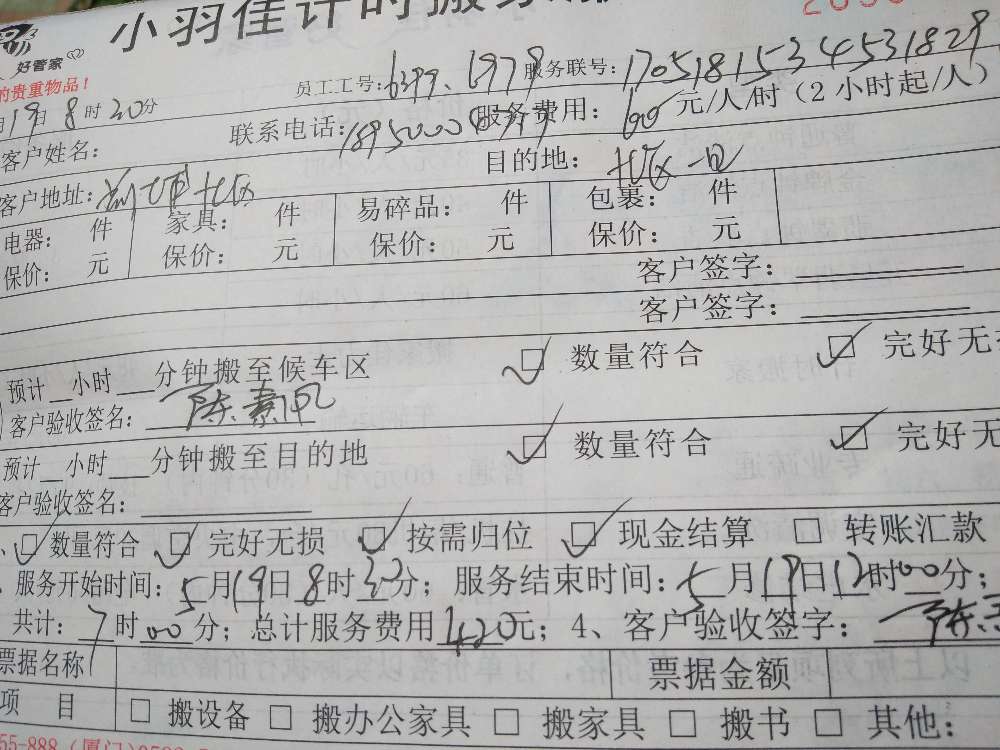 小羽佳计时搬
好管家
的贵重物品！
员工工号：6399、6979 服务联号：1705181534531829
月19日8时30分
联系电话： 服务费用：60元/人/时（2小时起/人）
客户姓名： 目的地：
客户地址：
电器： 件 家具： 件 易碎品： 件 包裹： 件
保价： 元 保价： 元 保价： 元 保价： 元
客户签字：
客户签字：
预计__小时___分钟搬至候车区 ☑ 数量符合 ☑ 完好无
客户验收签名：陈素凤
预计__小时___分钟搬至目的地 ☑ 数量符合 ☑ 完好无
客户验收签名：
、☑数量符合 ☑ 完好无损 ☑ 按需归位 ☑ 现金结算 转账汇款
服务开始时间：5月19日8时30分；服务结束时间：5月19日12时00分；
共计：7时00分；总计服务费用420元；4、客户验收签字：陈素
票据名称 票据金额
项 目 □ 搬设备 □ 搬办公家具 □ 搬家具 □ 搬书 □ 其他：